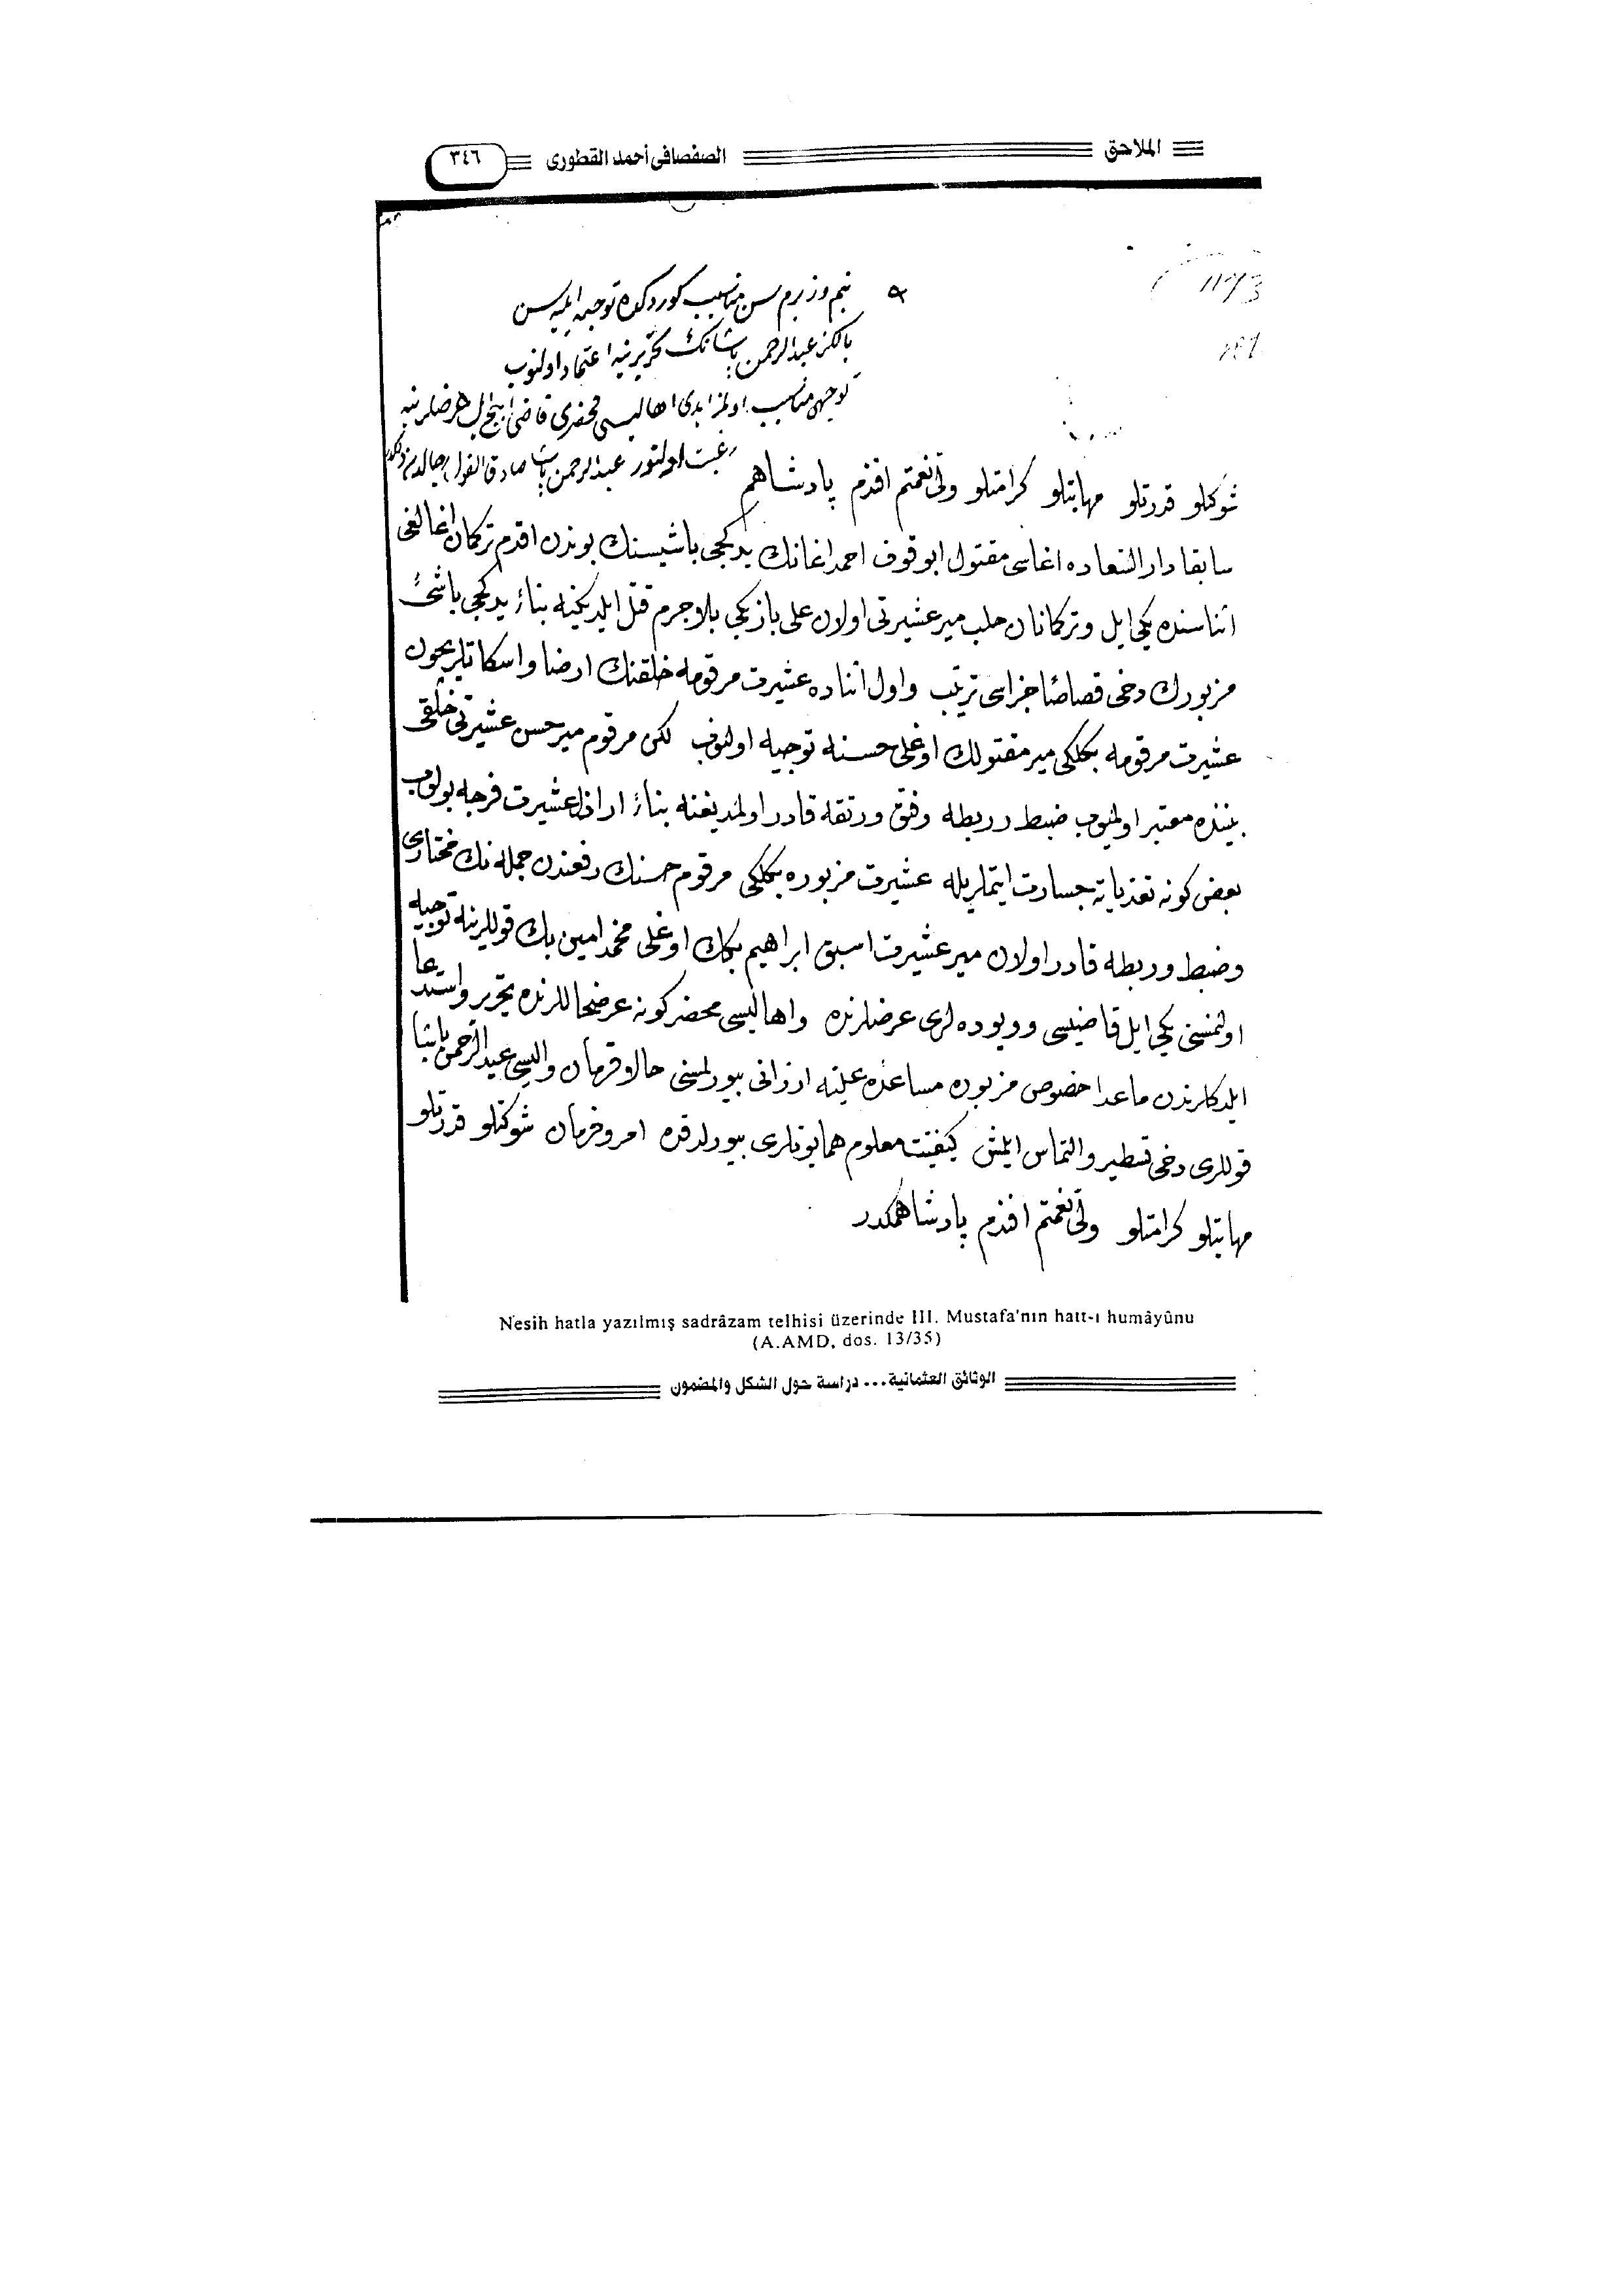 الملاحق
الصفصافى أحمد القطورى
٣٤٦
بنم وزيرم سن مناسب كوردكك توجيه ايليه سن
يالكز عبد الرحمن پاشانك تحريرينه اعتماد اولنوب
توجيهى مناسب اولمز ايدى اهاليسى محضرى قاضى
رغبت اولنور عبد الرحمن پاشا صادق القول
شوكتلو قدرتلو مهابتلو كرامتلو ولى نعمتم افندم پادشاهم
سابقا دار السعاده اغاسى مقتول ابو قوف احمد اغانك يدكجى باشيسنك بوندن اقدم تركمان اغالغى
اثناسنده يكى ايل وتركمانان حلب مير عشيرتى اولان على باز بكى بلا جرم قتل ايلديكنه بناء يدكجى باشئ
مزبورك دخى قصاصا جزاسى ترتيب واول اثناده عشيرت مرقومه خلقنك ارضا واسكاتلريچون
عشيرت مرقومه بكلكى مير مقتولك اوغلى حسنه توجيه اولنوب لكن مرقوم مير حسن عشيرتى خلقى
بيننده معتبر اولميوب ضبط وربطه وفتق ورتقه قادر اولمديغنه بناء اراذل عشيرت فرجه بولوب
بعض كونه تعدياته جسارت ايتملريله عشيرت مزبوره بكلكى مرقوم حسنك رفعندن جمله نك مختارى
وضبط وربطه قادر اولان مير عشيرت اسبق ابراهيم بكك اوغلى محمد امين بك قوللرينه توجيه
اولنمسنى يكى ايل قاضيسى وويوده لرى عرضلرنده واهاليسى محضر كونه عرضحاللرنده تحرير واستدعا
ايلدكلرندن ماعدا خصوص مزبوره مساعده عليه ارزانى بيورلمسنى حالا قرمان واليسى عبد الرحمن پاشا
قوللرى دخى تسطير والتماس ايلمش كيفيت معلوم همايونلرى بيورلدقده امر وفرمان شوكتلو قدرتلو
مهابتلو كرامتلو ولى نعمتم افندم پادشاهمكدر
Nesih hatla yazılmış sadrâzam telhisi üzerinde III. Mustafa'nın hatt-ı humâyûnu
(A.AMD, dos. 13/35)
الوثائق العثمانية... دراسة حول الشكل والمضمون